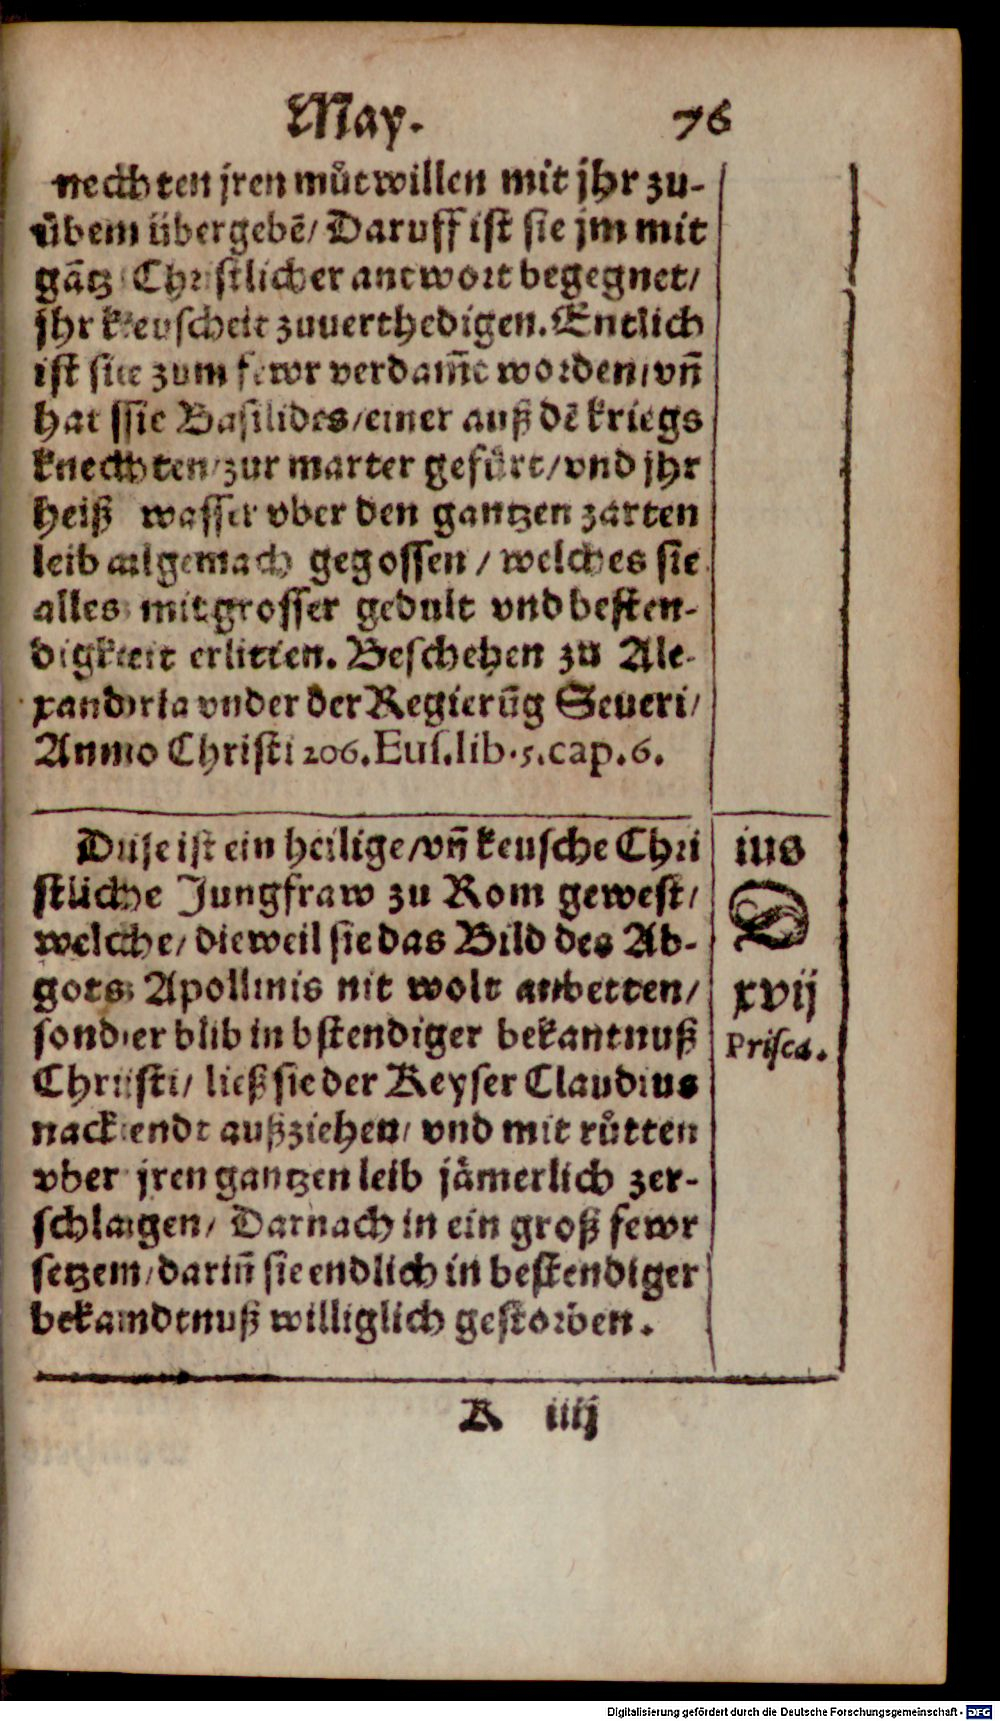 May. 76
nechten jren můtwillen mit jhr zu-
übem übergebē/ Daruff ist sie jm mit
gātz Christlicher antwort begegnet/
jhr keuscheit zuuerthedigen. Entlich
ist sie zum fewr verdam̄t worden/ vn̄
hat sie Basilides/ einer auß dē kriegs
knechten/ zur marter gefürt/ vnd jhr
heiß wasser vber den gantzen zarten
leib allgemach gegossen / welches sie
alles mit grosser gedult vnd besten-
digkeit erlitten. Beschehen zu Ale-
xandria vnder der Regierūg Seueri/
Anno Christi 206. Eus.lib.5.cap.6.
Dise ist ein heilige/ vn̄ keusche Chri
stliche Jungfraw zu Rom gewest/
welche/ dieweil sie das Bild des Ab-
gots Apollinis nit wolt anbetten/
sonder blib in bstendiger bekantnuß
Christi/ ließ sie der Keyser Claudius
nackendt außziehen/ vnd mit růtten
vber jren gantzen leib jämerlich zer-
schlagen/ Darnach in ein groß fewr
setzem/ darin̄ sie endlich in bestendiger
bekandtnuß williglich gestorben.
ius
D
xvij
Prisca.
K iiij
Digitalisierung gefördert durch die Deutsche Forschungsgemeinschaft - DFG